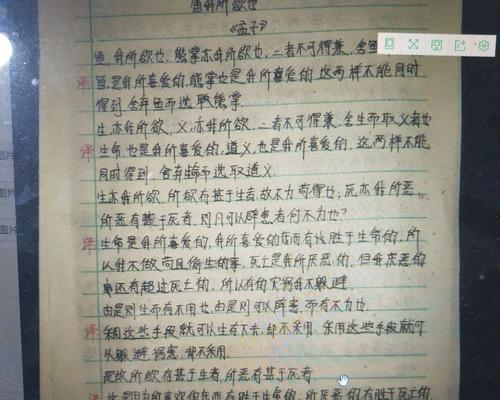 鱼我所欲也
《孟子》
鱼,我所欲也,熊掌亦我所欲也,二者不可得兼,舍鱼
译 鱼是我所喜爱的,熊掌也是我所喜爱的,这两样不能同时
得到,舍弃鱼而选取熊掌.
生亦我所欲,义,亦我所欲,二者不可得兼,舍生而取义者也
译 生命也是我所喜爱的,道义,也是我所喜爱的,这两样不能
同时得到,舍弃生命而选取道义.
生亦我所欲,所欲有甚于生者,故不为苟得也;死亦我所恶,
所恶有甚于死者,则凡可以辟患者何不为也?
译 生命是我所喜爱的,我所喜爱的东西有比胜于生命的,所
以我不做苟且偷生的事,死亡是我所厌恶的,但我厌恶的
事还有超过死亡的,所以有的灾祸我不躲避.
由是则生而有不用也,由是则可以辟患,而有不为也.
译 采用这些手段就可以生存下去,却不采用,采用这些手段就可
以躲避祸患,却不采用.
是故所欲有甚于生者,所恶有甚于死者
译 这是因为所喜欢的东西有胜于生命的,所厌恶的有胜于死亡的
图片
图片